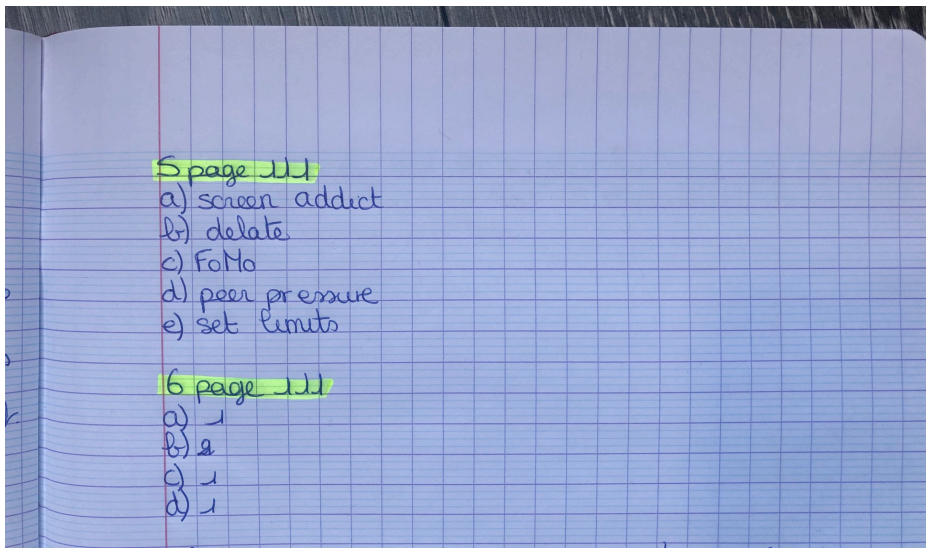 5 page 111
a) screen addict
b) delate
c) FoMo
d) peer pressure
e) set limits
6 page 111
a) 1
b) 2
c) 1
d) 1